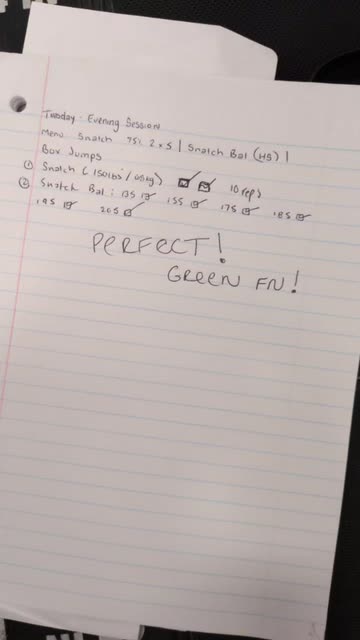 Tuesday: Evening Session
Menu: Snatch 75% 2x5 | Snatch Bal (HS) |
Box Jumps
① Snatch (150lbs / 68kg) 10 reps
② Snatch Bal: 135 ☑ 155 ☑ 175 ☑ 185 ☑
195 ☑ 205 ☑
PERFECT!
GREEN FN!